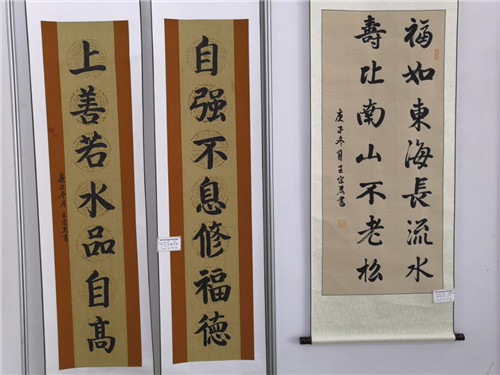 福如東海長流水
壽比南山不老松
庚子冬月王宗書
自强不息修福德
上善若水品自高
庚子冬月王宗書